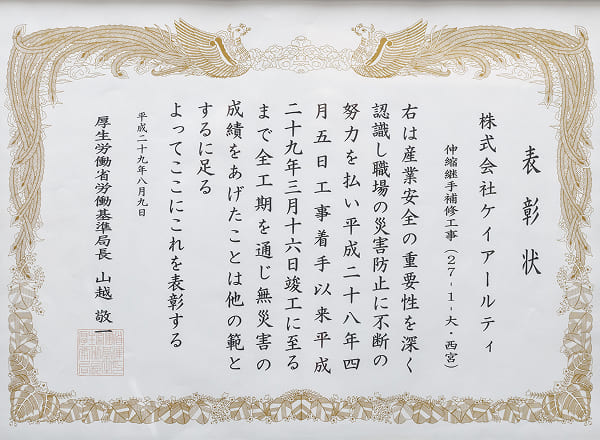 表彰状
株式会社ケイアールティ
伸縮継手補修工事(27-1-大・西宮)
右は産業安全の重要性を深く
認識し職場の災害防止に不断の
努力を払い平成二十八年四
月五日工事着手以来平成
二十九年三月十六日竣工に至る
まで全工期を通じ無災害の
成績をあげたことは他の範と
するに足る
よってここにこれを表彰する
平成二十九年八月九日
厚生労働省労働基準局長 山越 敬一